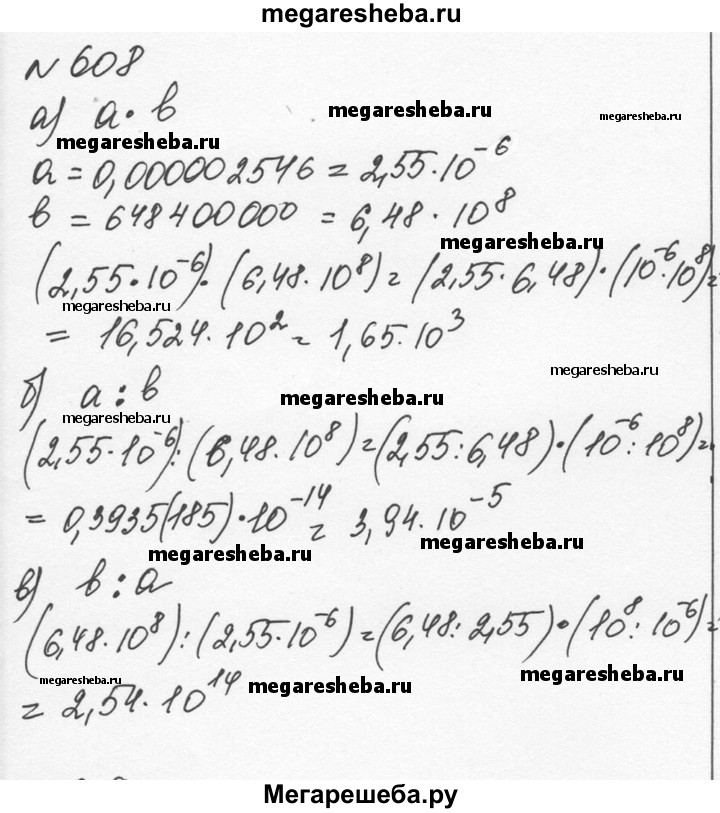 megaresheba.ru
N 608
а) a · b
megaresheba.ru
megaresheba.ru
megaresheba.ru
a = 0,000002546 = 2,55·10⁻⁶
b = 648400000 = 6,48 · 10⁸
megaresheba.ru
(2,55·10⁻⁶)·(6,48·10⁸) = (2,55·6,48)·(10⁻⁶·10⁸) =
megaresheba.ru
= 16,524·10² = 1,65·10³
б) a : b
megaresheba.ru
megaresheba.ru
megaresheba.ru
(2,55·10⁻⁶):(6,48·10⁸) = (2,55:6,48)·(10⁻⁶:10⁸) =
= 0,3935(185)·10⁻¹⁴ = 3,94·10⁻⁵
megaresheba.ru
megaresheba.ru
в) b : a
(6,48·10⁸):(2,55·10⁻⁶) = (6,48:2,55)·(10⁸:10⁻⁶) =
megaresheba.ru
megaresheba.ru
megaresheba.ru
= 2,54·10¹⁴
Мегарешеба.ру